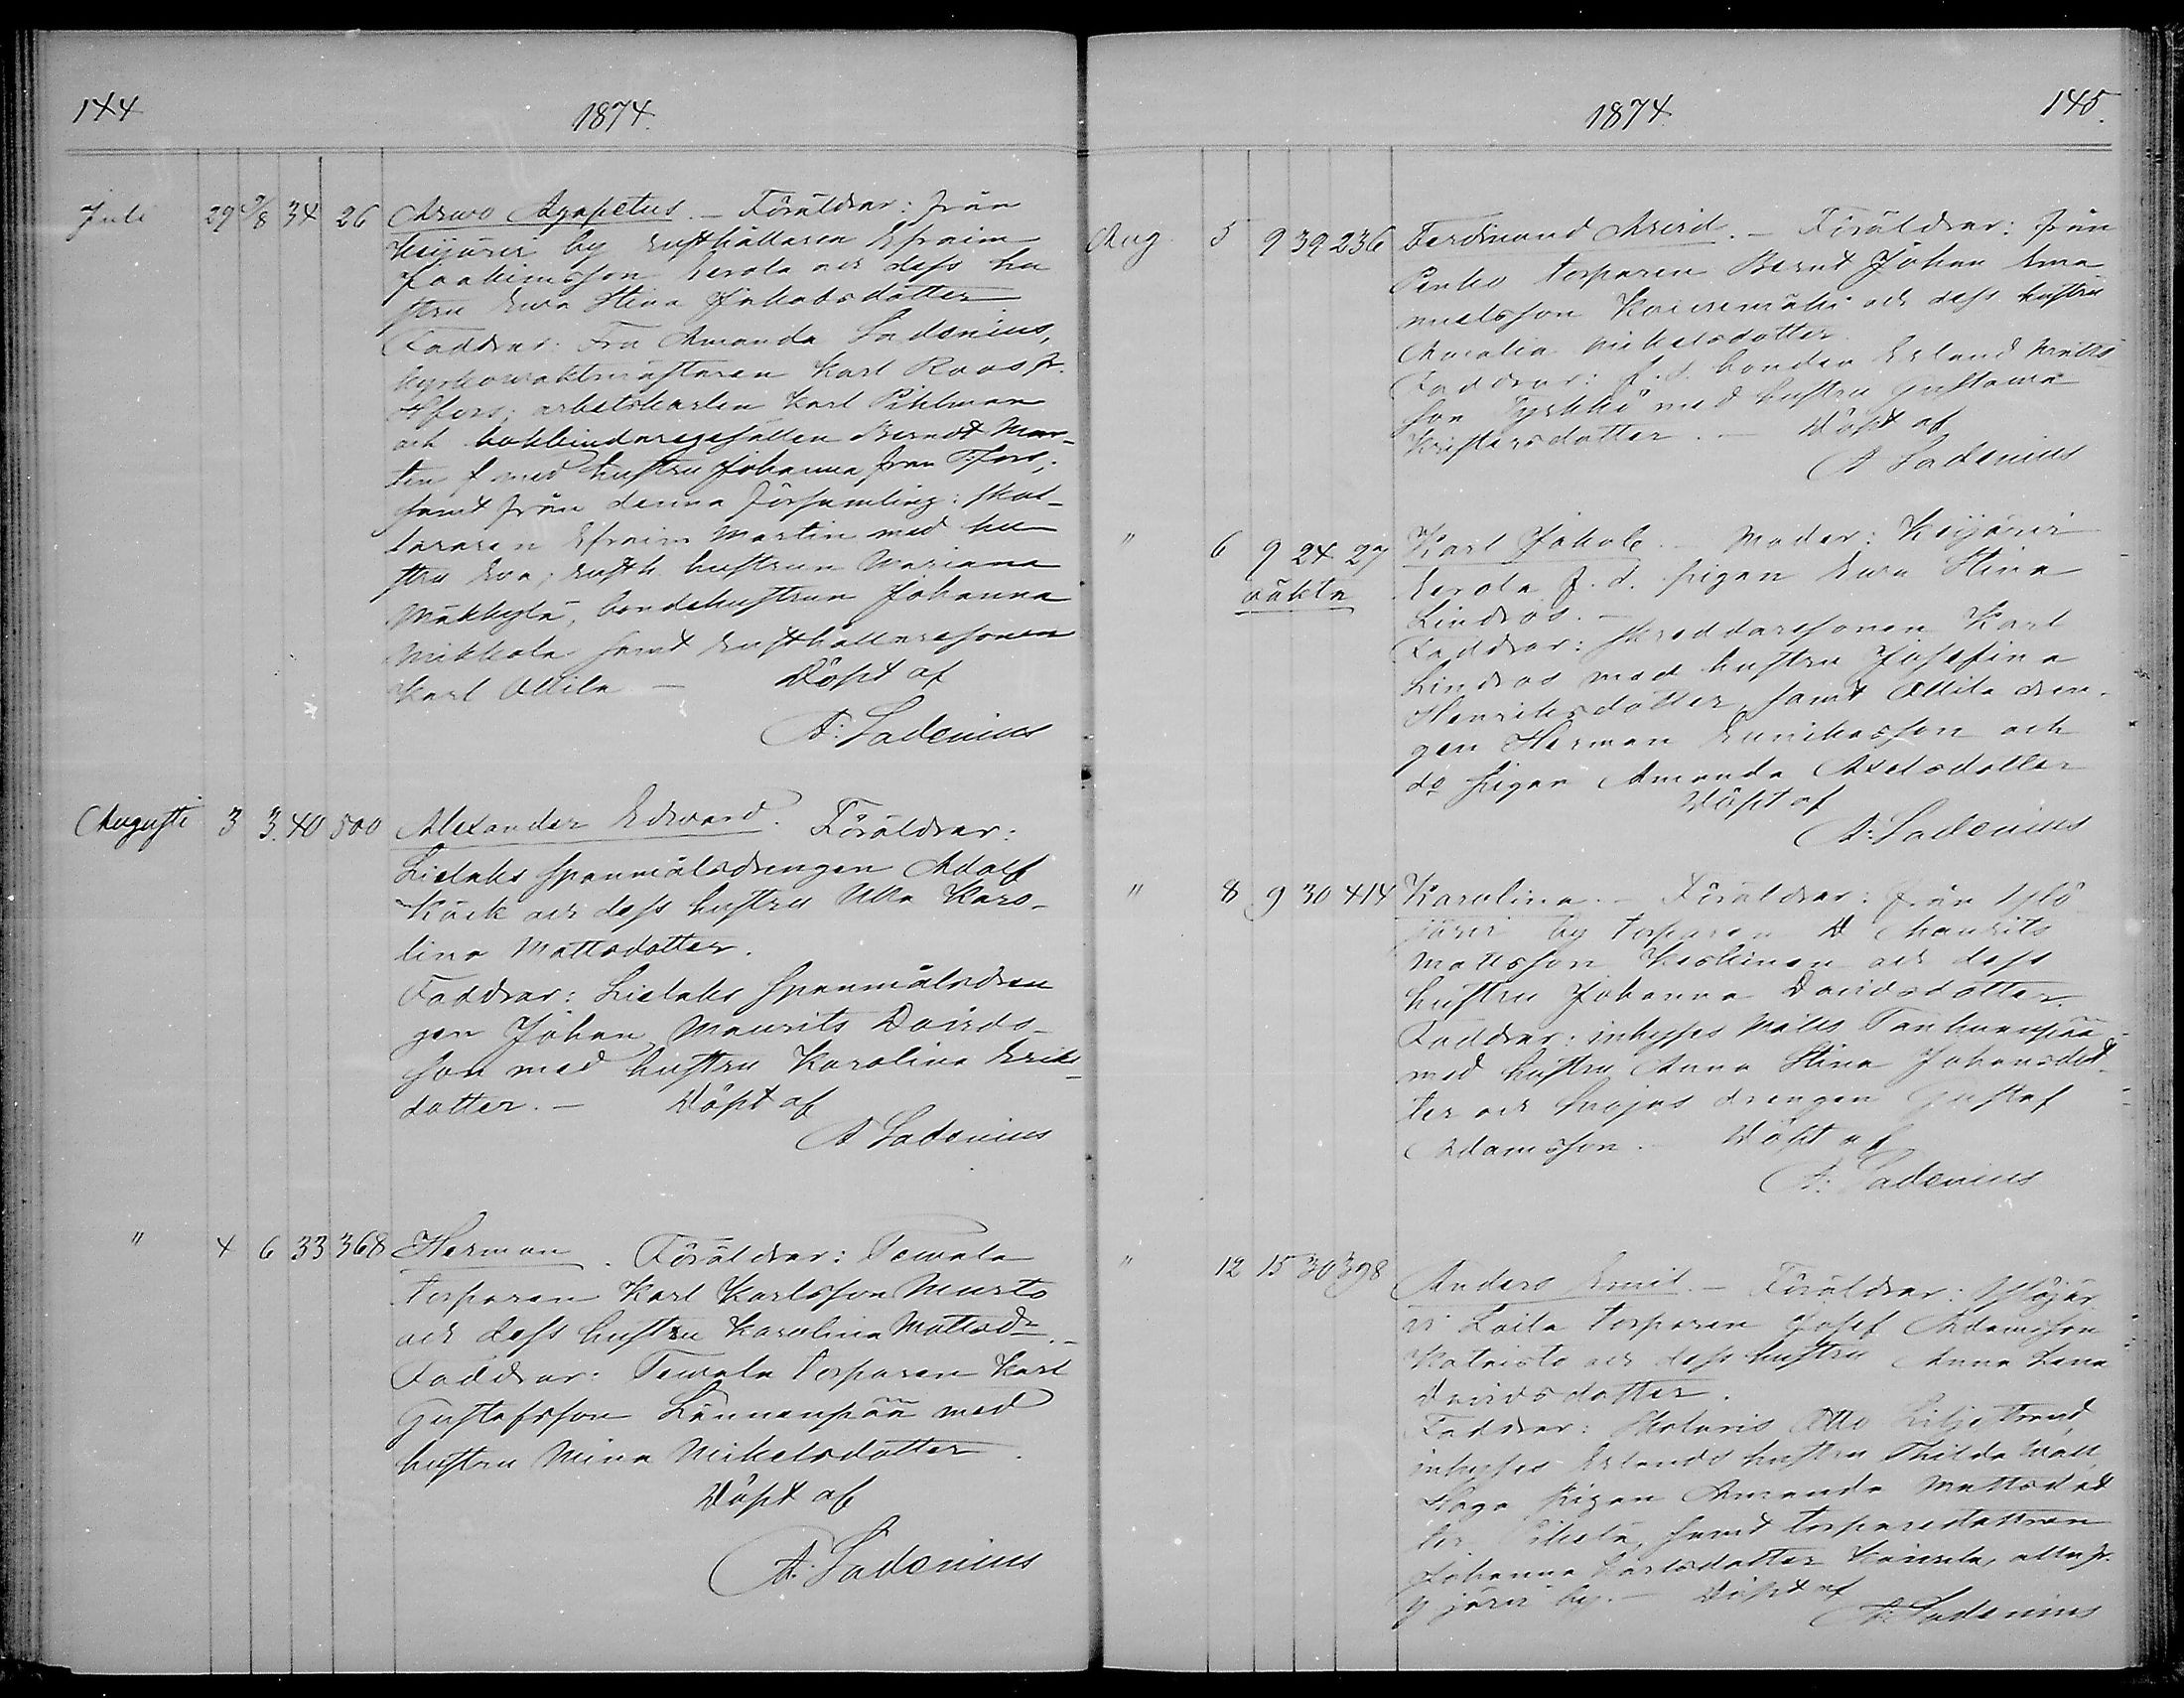 144
1874.
Juli 29 9/8 34 26 Arwo Agapetus. - Föräldrar: från
Keijärvi by rusthållaren Efraim
Joakimsson Eerola och dess hu
stru Eva Stina Jakobsdotter
Faddrar: Fru Amanda Ladenius,
kyrkovaktmästaren Karl Roos fr.
Hfors; arbetskarlen Karl Pihlman
och bokbindaregesällen Berndt Mar-
tin med hustru Johanna från Tfors;
samt från denna församling: skol-
läraren Efraim Martin med hu
stru Eva; rusth. hustrun Mariana
Mäkkylä, bondehustrun Johanna
Mikkola samt rusthållaresonen
Karl Ollila - Döpt af
A: Ladenius
Augusti 3 3. 40 500 Alexander Edvard. Föräldrar:
Lielaks spanmålsdrengen Adolf
Käck och dess hustru Ulla Karo-
lina Mattsdotter.
Faddrar: Lielaks spanmålsdren
gen Johan Maurits Davids-
son med hustru Karolina Eriks-
dotter. - Döpt af
A Ladenius
" 4 6 33 368 Herman. Föräldrar: Tewala
torparen Karl Karlsson Murto
och dess hustru Karolina Mattsdr. -
Faddrar: Tewala torparen Karl
Gustafsson Lännenpää med
hustru Mina Mikelsdotter.
Döpt af
A. Ladenius
1874
145.
Aug. 5 9 39 236 Ferdinand Arvid. - Föräldrar: från
Penho torparen Bernt Johan Ema-
nuelsson Koivumäki och dess hustru
Amalia Mikelsdotter.
Faddrar: f. d. bonden Erland Matts-
son Tyrkkö med hustru Gustava
Kristersdotter. - Döpt af
A Ladenius
" 6 9 24 27 Karl Jakob. - Moder: Keijärvi
oäkta Eerola f. d. pigan Eva Stina
Lindros. -
Faddrar: skreddaresonen Karl
Lindros med hustru Josefina
Henriksdotter, samt Ollila dren-
gen Herman Eriniksson och
do pigan Amanda Axelsdotter
Döpt af
A: Ladenius
" 8 9 30 414 Karolina. - Föräldrar: från Ylö
järvi by torparen D Maurits
Mattsson Keskinen och dess
hustru Johanna Davidsdotter.
Faddrar: inhyses Matts Tanhuanpää
med hustru Anna Stina Johansdot-
ter och drengen Gustaf
Adamsson. - Döpt af
A: Ladenius
" 12 15 30 398 Anders Emil. - Föräldrar: Ylöjär
vi Laila torparen Josef Adamsson
Katnisto och dess hustru Anna Lena
Davidsdotter.
Faddrar: Otto Liljetrand,
inhyses Erlands hustru Thilda Wall,
pigan Amanda Mattsdot
ter samt torparedottren
Johanna Karlsdotter alla fr.
Yjärvi by. - Döpt af
A: Ladenius